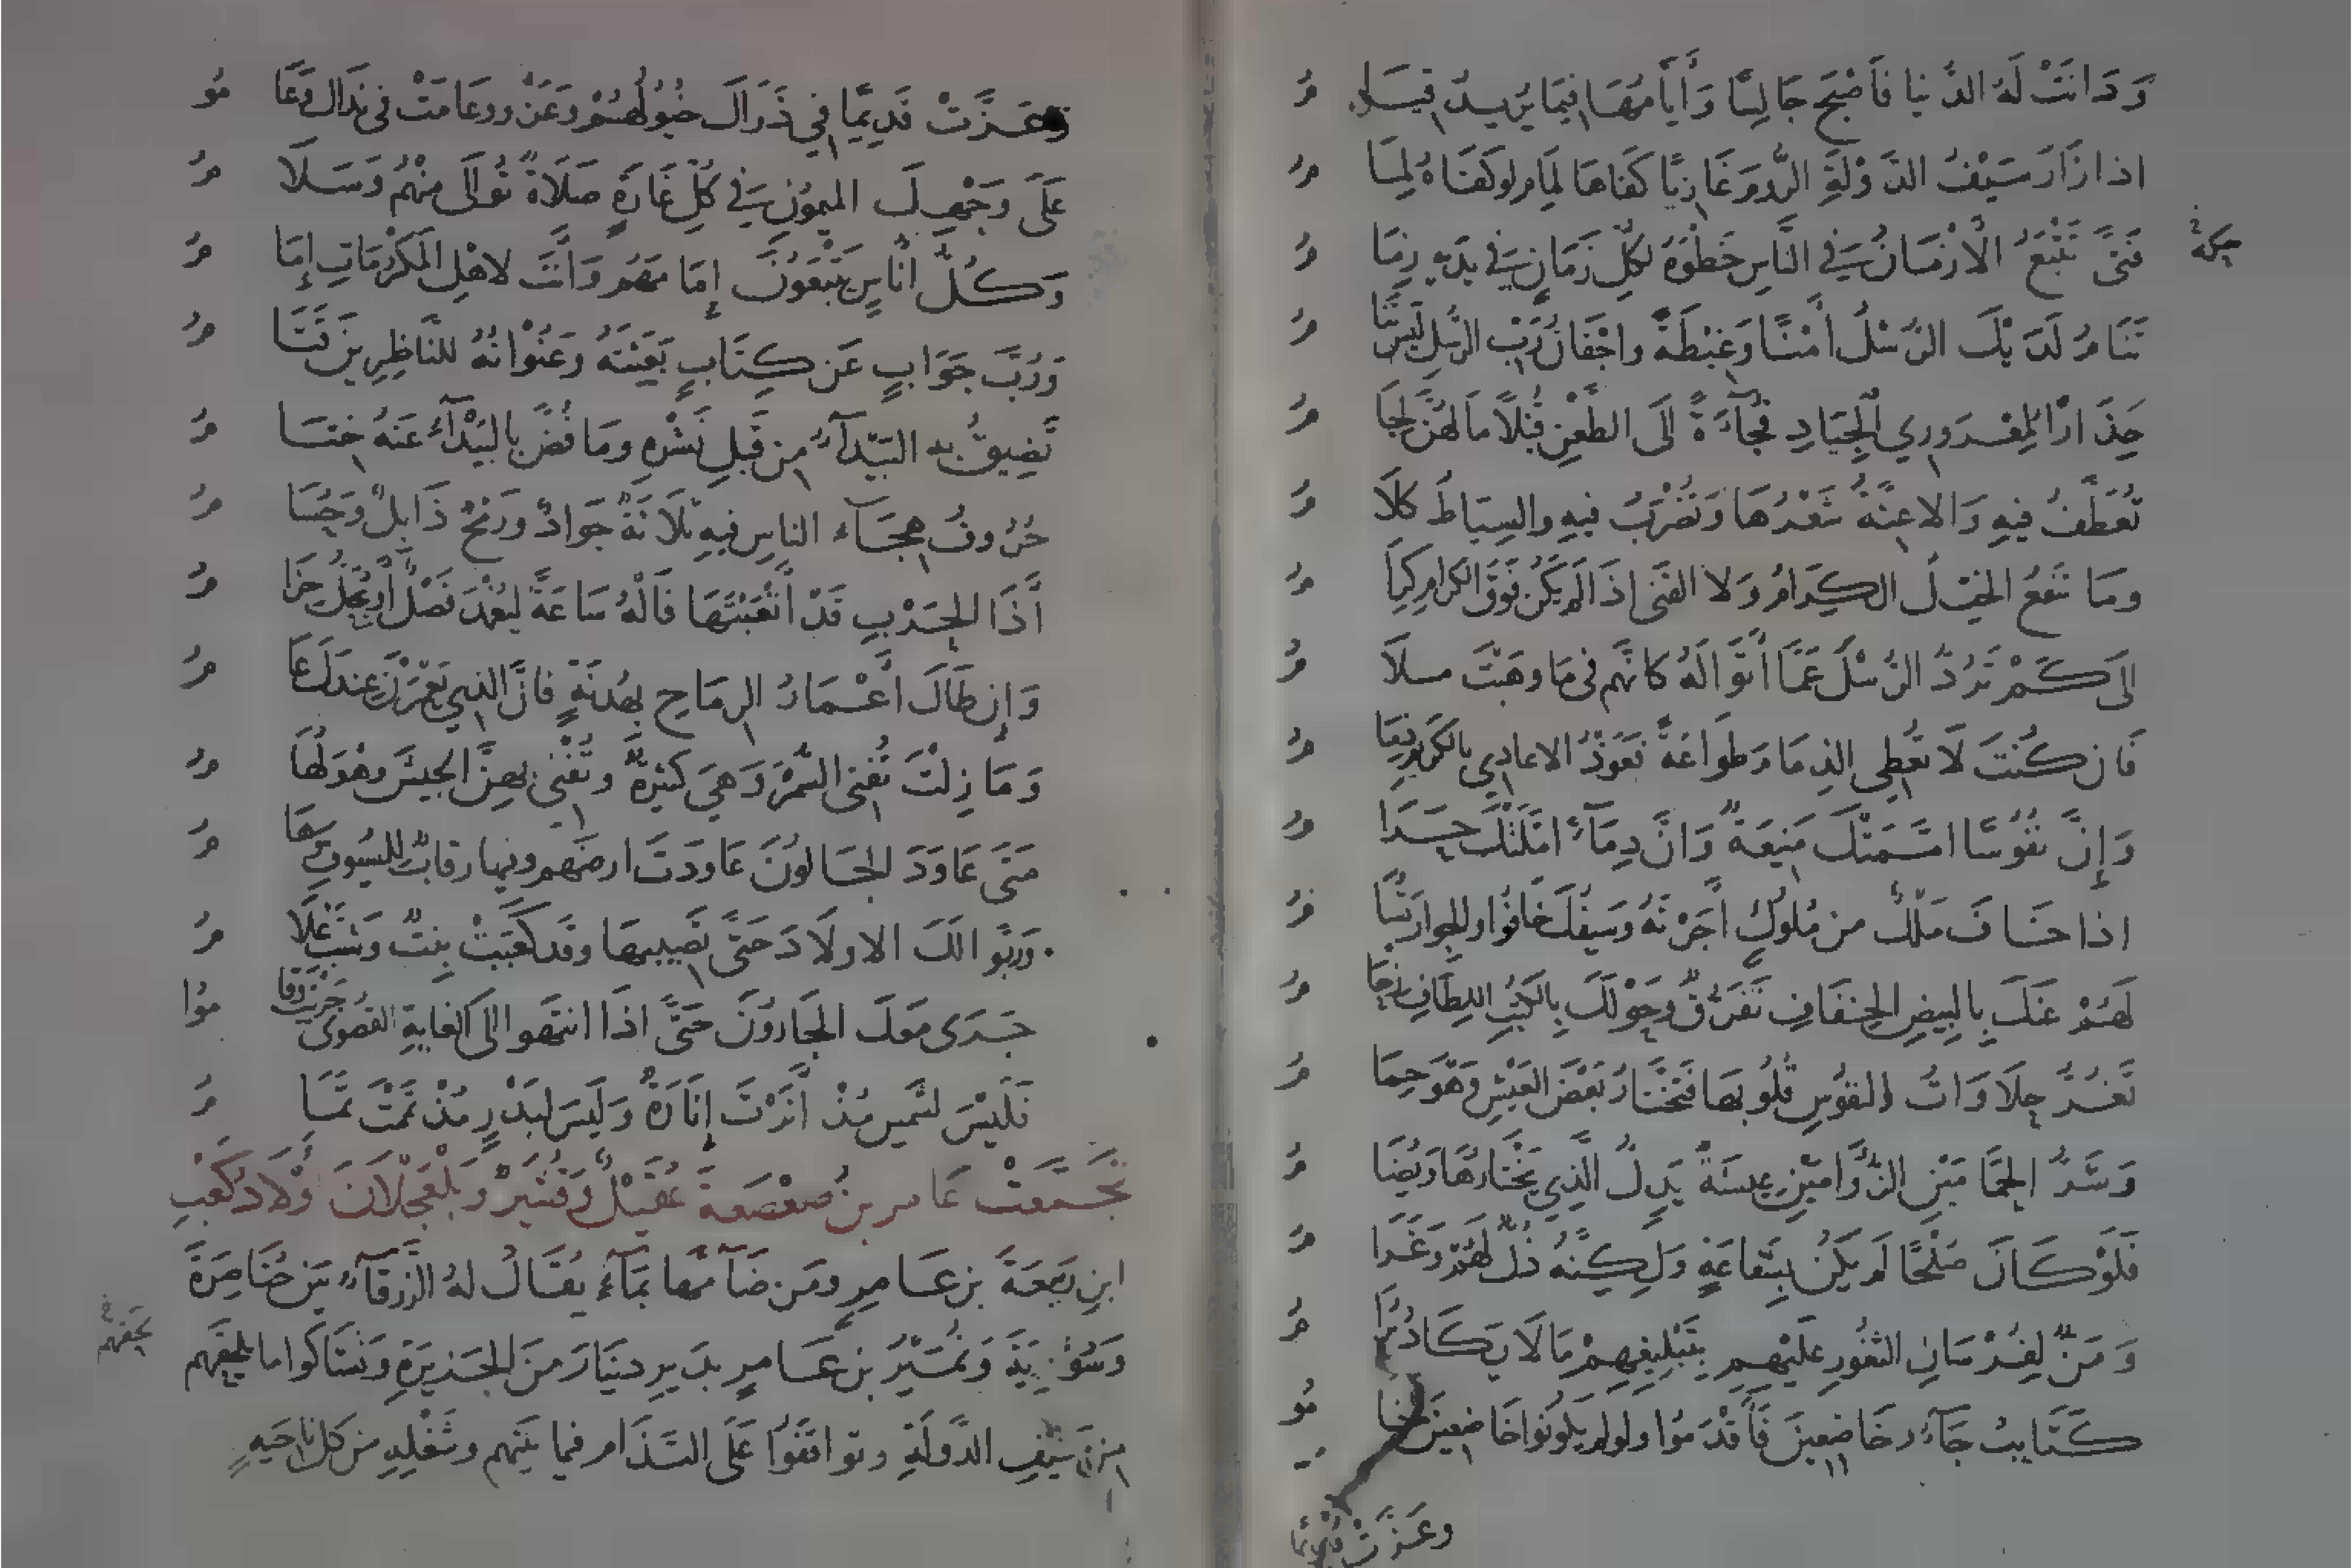 وَدَانَتْ لَهُ الدُّنْيَا فَأَصْبَحَ جَالِسًا وَأَيَّامُهَا فِيمَا يُرِيدُ قِيَا مُ
اذا زَارَ سَيْفُ الدَّوْلَةِ الرُّومَ غَازِيًا كَفَاهَا لِمَامٌ لَوْ كَفَاهُ لِمَا مُ
فَتًى تَتْبَعُ الْأَزْمَانُ فِي النَّاسِ خَطْوَهُ لِكُلِّ زَمَانٍ فِي يَدَيْهِ زِمَا مُ
تَنَامُ لَدَيْكَ الرُّسْلُ أَمْنًا وَغِبْطَةً وَاجْفَانُ رَبِّ الرُّسْلِ لَيْسَ تَنَا مُ
حِذَارًا لِمُعْرَوْرِي الْجِيَادِ فُجَآءَةً الَى الطَّعْنِ قُبْلًا مَا لَهُنَّ لِجَا مُ
تُعَطَّفُ فِيهِ وَالاعِنَّةُ شَعْرُهَا وَتُضْرَبُ فِيهِ وَالسِيَاطُ كَلَا مُ
وَمَا تَنْفَعُ الْخَيْلُ الْكِرَامُ وَلَا الْقَنَى اذَا لَمْ يَكُنْ فَوْقَ الْكِرَامِ كِرَا مُ
الَى كَمْ تَرُدُّ الرُّسْلَ عَمَّا أَتَوْا لَهُ كَانَّهُمْ فِي مَا وَهَبْتَ مَلَا مُ
فَانْ كُنْتَ لَا تُعْطِي الذِّمَامَ طَوَاعَةً فَعَوْذُ الاعَادِي بِالْكَرِيمِ ذِمَا مُ
وَإِنَّ نُفُوسًا امَّمَتْكَ مَنِيعَةٌ وَانَّ دِمَآءً امَّلَتْكَ حَرَا مُ
اذا خَافَ مَلْكٌ مِنْ مُلُوكٍ أَجَرْتَهُ وَسَيْفَكَ خَافُوا وَالجِوَارَ تُسَا مُ
لَهُمْ عَنْكَ بِالْبِيضِ الْخِفَافِ تَفَرُّقٌ وَحَوْلَكَ بِالْكُتْبِ اللِّطَافِ زِحَا مُ
تَغُرُّ حَلَاوَاتُ النُّفُوسِ قُلُوبَهَا فَتَخْتَارُ بَعْضَ الْعَيْشِ وَهْوَ حِمَا مُ
وَشَرُّ الْحِمَامَيْنِ الزُّؤَامَيْنِ عِيشَةٌ يَذِلُّ الَّذِي يَخْتَارُهَا وَيُضَا مُ
فَلَوْ كَانَ صُلْحًا لَمْ يَكُنْ بِشَفَاعَةٍ وَلَكِنَّهُ ذُلٌّ لَهُمْ وَغَرَا مُ
وَمَنٌّ لِفُرْسَانِ الثُّغُورِ عَلَيْهِمِ بِتَبْلِيغِهِمْ مَا لَا يَكَادُ يُرَا مُ
كَتَايِبُ جَآءُوا خَاضِعِينَ فَأَقْدَمُوا وَلَوْ لَمْ يَكُونُوا خَاضِعِينَ لَخَا مُو
وعَزَّتْ قَدِيمًا
وَعَزَّتْ قَدِيمًا فِي ذَرَاكَ خُيُولُهُمْ وَعَزُّوا وَعَامَتْ فِي نَدَاكَ وَعَا مُو
عَلَى وَجْهِكَ الْمَيْمُونِ فِي كُلِّ غَارَةٍ صَلَاةٌ تُوَالَى مِنْهُمُ وَسَلَا مُ
وَكُلُّ أُنَاسٍ يَتْبَعُونَ إِمَامَهُمْ وَأَنْتَ لاهْلِ الْمَكْرُمَاتِ إِمَا مُ
وَرُبَّ جَوَابٍ عَنْ كِتَابٍ بَعَثْتَهُ وَعُنْوَانُهُ لِلنَّاظِرِينَ قَتَا مُ
تَضِيقُ بِهِ الْبَيْدَآءُ مِنْ قَبْلِ نَشْرِهِ وَمَا فُضَّ بِالْبَيْدَآءِ عَنْهُ خِتَا مُ
حُرُوفُ هِجَآءِ النَّاسِ فِيهِ ثَلَاثَةٌ جَوَادٌ وَرُمْحٌ ذَابِلٌ وَحُسَا مُ
أَذَا الْحَرْبِ قَدْ أَتْعَبْتَهَا فَالْهُ سَاعَةً لِيُغْمَدَ نَصْلٌ أَوْ يُحَلَّ حِزَا مُ
وَإِنْ طَالَ أَعْمَارُ الرِمَاحِ بِهُدْنَةٍ فَانَّ الَّذِي يَعْمُرْنَ عِنْدَكَ عَا مُ
وَمَا زِلْتَ تُفْنِي السُّمْرَ وَهِيَ كَثِيرَةٌ وَتُفْنِي بِهِنَّ الْجَيْشَ وَهْوَ لُهَا مُ
مَتَى عَاوَدَ الْجَالُونَ عَاوَدْتَ ارْضَهُمْ وَفِيهَا رِقَابٌ لِلسُّيُوفِ وَهَا مُ
وَرَبَّوْا لَكَ الاوْلَادَ حَتَّى تُصِيبَهَا وَقَدْ كَعَبَتْ بِنْتٌ وَشَبَّ غُلَا مُ
جَرَى مَعَكَ الْجَارُونَ حَتَّى اذَا انْتَهَوْا الَى الْغَايَةِ الْقُصْوَى جَرَيْتَ وَقَا مُوا
فَلَيْسَ لِشَمْسٍ مُذْ أَنَرْتَ إِنَارَةٌ وَلَيْسَ لِبَدْرٍ مُذْ تَمَمْتَ تَمَا مُ
تَجَمَّعَتْ عَامِرُ بنُ صَعْصَعَةَ عُقَيْلٌ وَقُشَيْرٌ وَبَلْعَجْلَانَ أَوْلَادُ كَعْبِ
ابنِ رَبِيعَةَ بنِ عَامِرٍ وَمَنْ ضَآمَّهَا بِمَآءٍ يُقَالُ لَهُ الزَّرْقَآءُ بَيْنَ خُنَاصِرَةَ
وَسُورِيَةَ وَنُمَيْرُ بنُ عَامِرٍ بِدَيْرِ دِينَارَ مِنَ الْجَزِيرَةِ وَتَشَاكَوا مَا يَلْحَقُهُم
مِنْ سَيْفِ الدَّوْلَةِ وتوَافَقُوا عَلَى التَّذَامِ فيما بينهم وشَغْلِهِ من كل ناحيةٍ